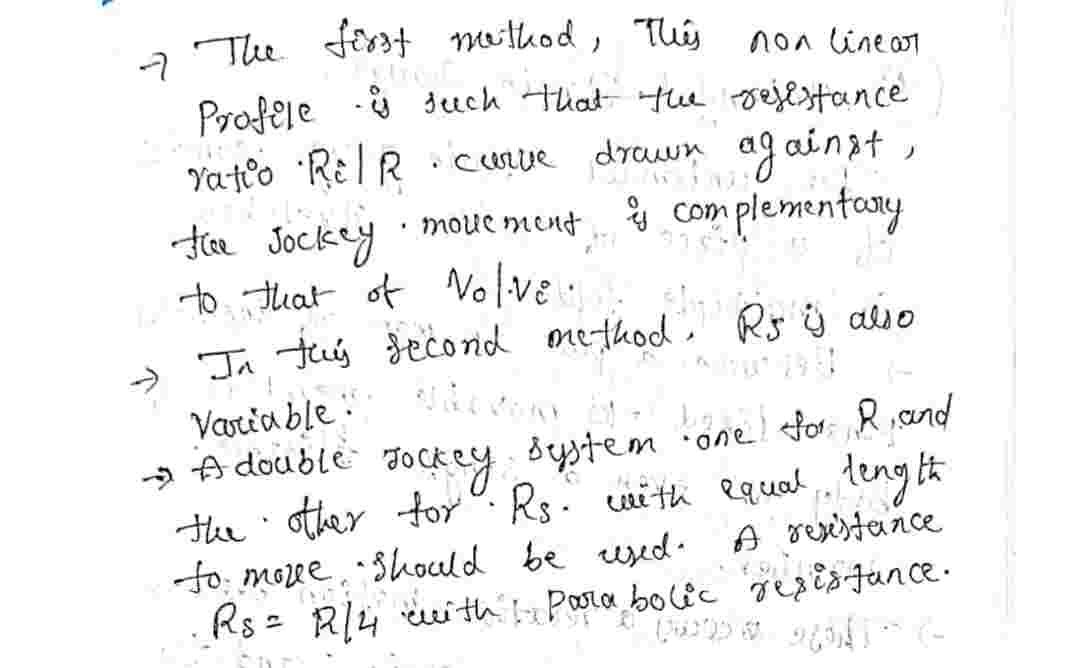 → The first method, This non linear
Profile is such that the resistance
ratio Ri/R curve drawn against,
the Jockey movement is complementary
to that of Vo/Vi.
→ In this second method, Rs is also
variable.
→ A double Jockey system one for R and
the other for Rs. with equal length
to move should be used. A resistance
Rs = R/4 with parabolic resistance.